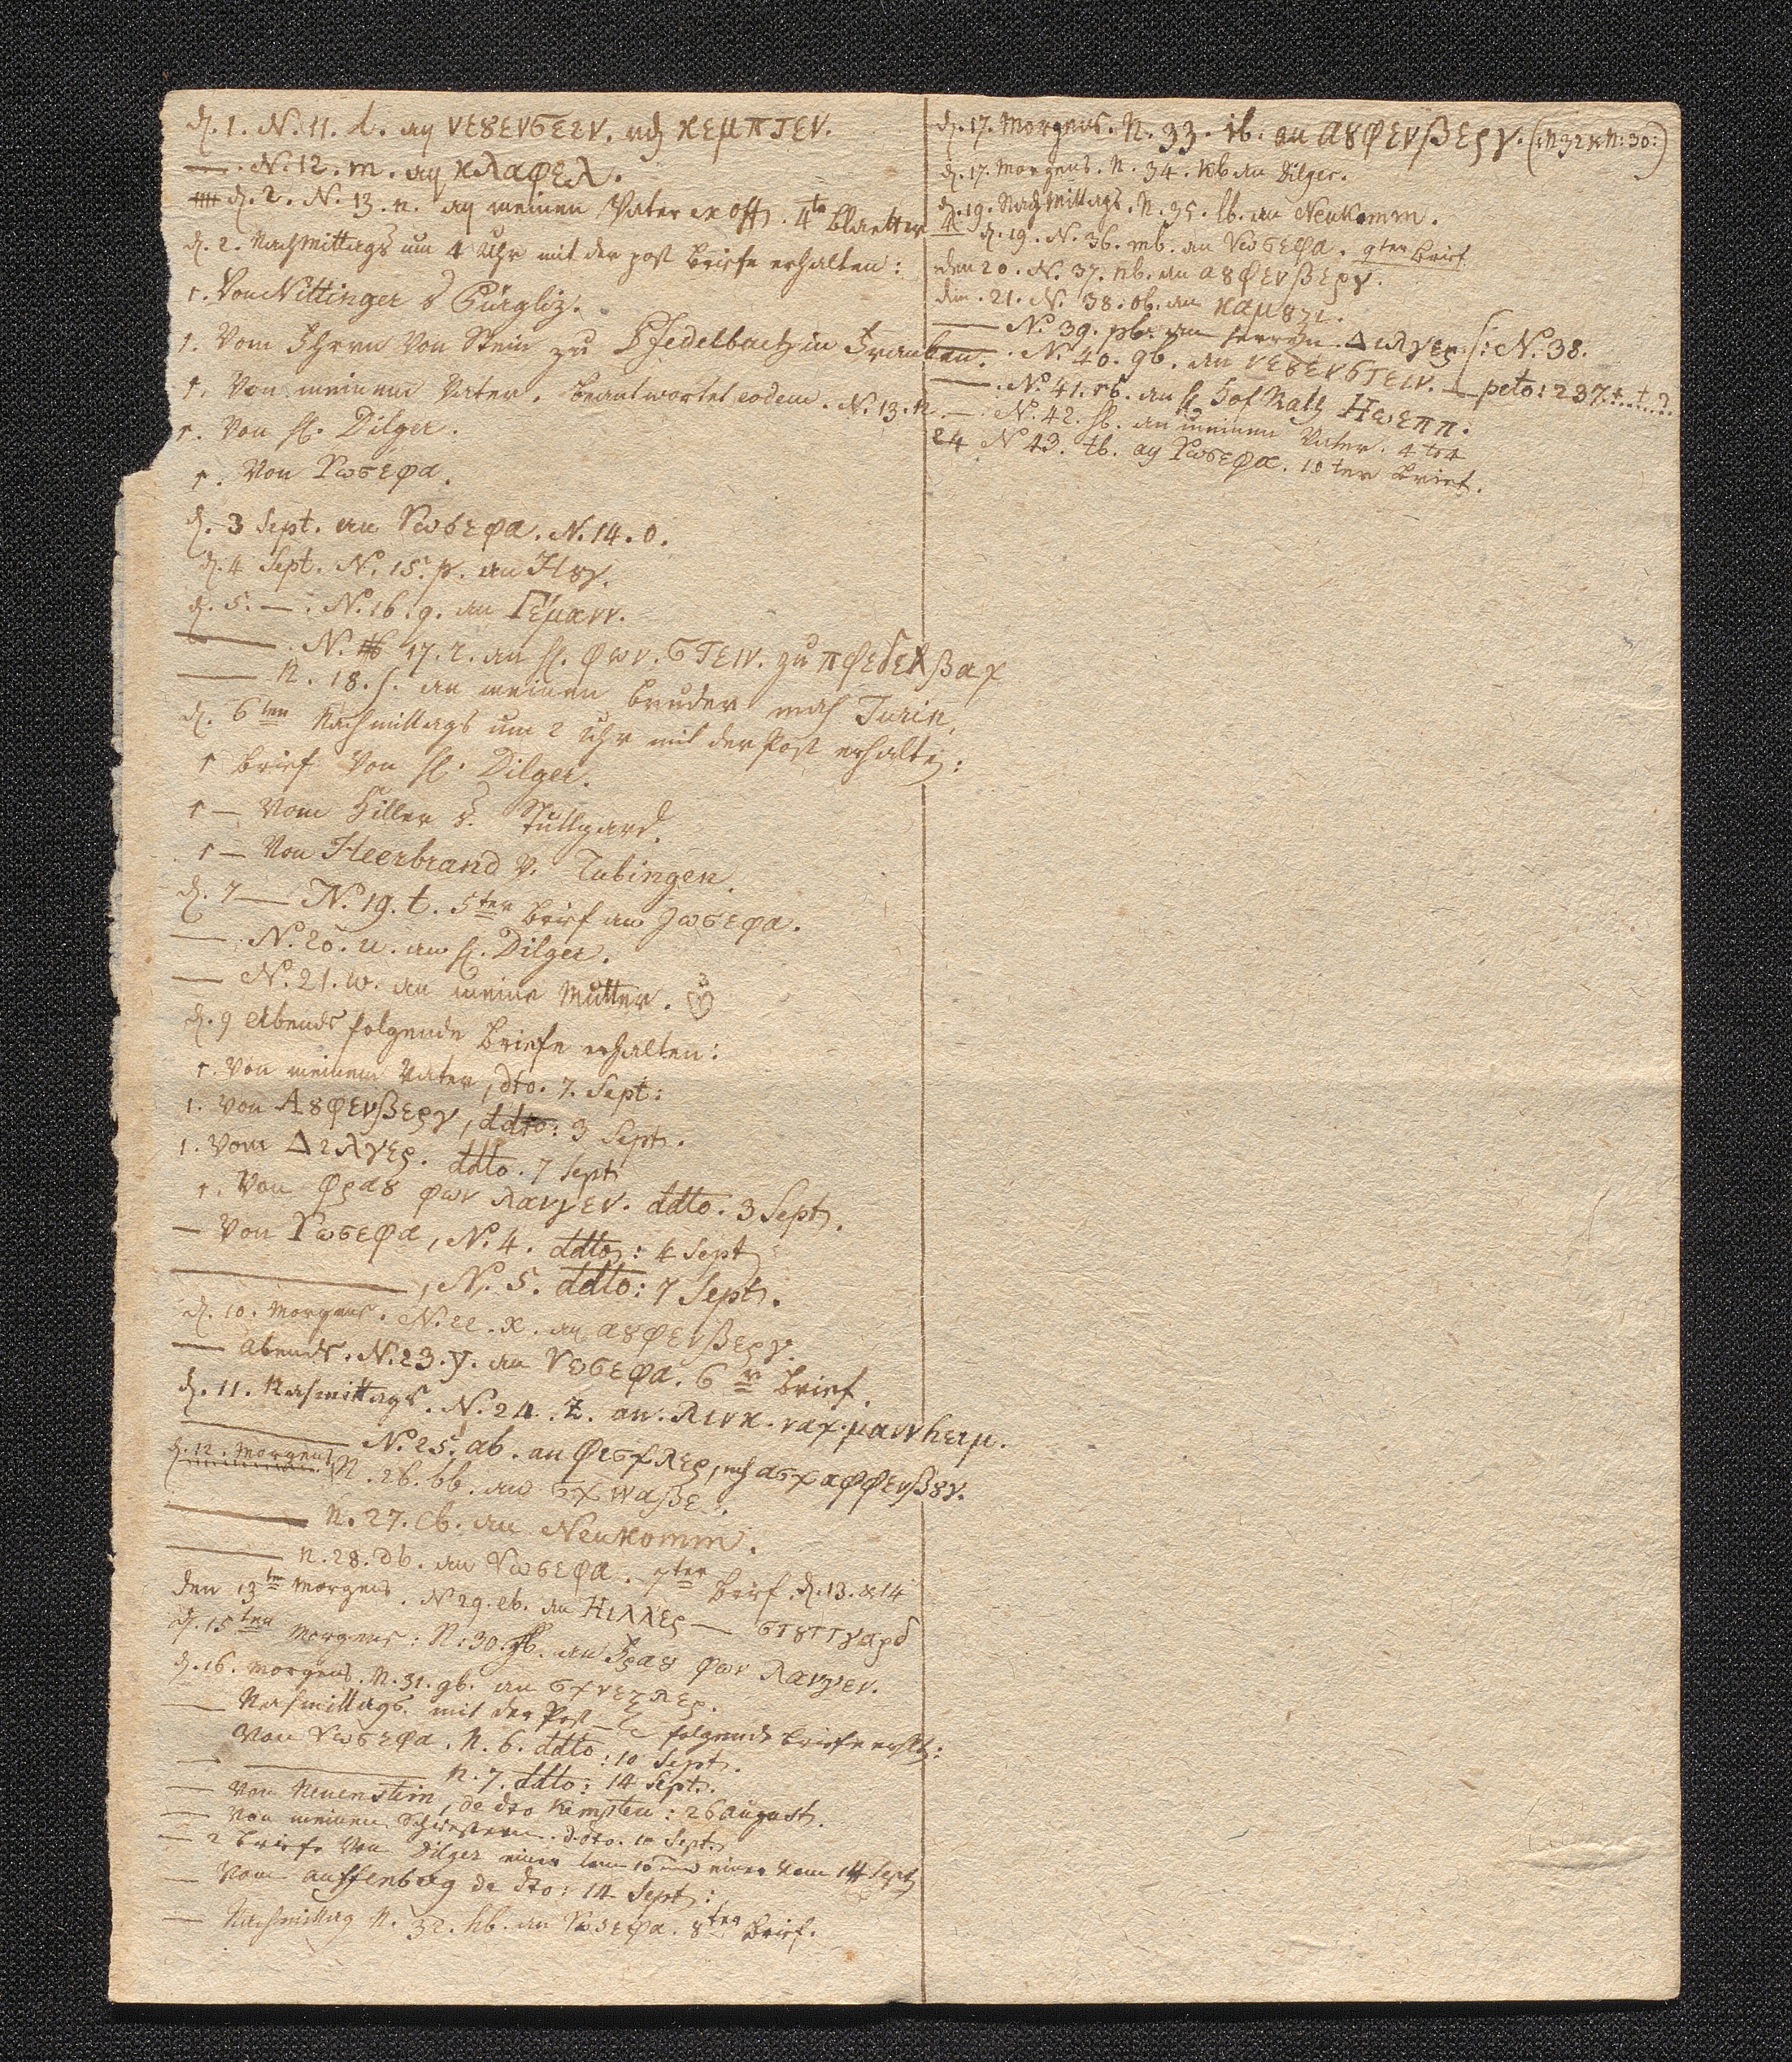 d. 1. N. 11. l. an νεȣενσειν. nach κεμπτεν.
— . N. 12. m. an κλαφελ.
d. 2. N. 13. n. an meinen Vater ex off. 4to blaetter
d. 2. Nachmittags um 4 Uhr mit der post briefe erhalten:
1. Von Nittinger Pürgliz.
1. Vom Hhrrn Von Stein zu Pfedelbach in Franken.
1. Von meinem Vater. beantwortet eodem. N. 13. n.
1. Von H. Dilger.
1. Von Υωσεφα.
d. 3 Sept. an Υωσεφα. N. 14. o.
d. 4 Sept. N. 15. p. an Ηȣγ.
d. 5. — . N. 16. q. an Γέμανν.
— . N. 17. r. an H. φων. στειν. zu πφεδελβαχ
— N. 18. s. an meinen bruder nach Turin.
d. 6ten Nachmittags um 2 Uhr mit der Post erhalten:
1 brief Von H. Dilger.
1 — Vom Hiller v. Stuttgard.
1 — Von Heerbrand v. Tubingen.
d. 7 — N. 19. t. 5ter brief an Υωσεφα.
— . N. 20. u. an H. Dilger.
— N. 21. w. an meine Mutter.
d. 9 Abends folgende briefe erhalten:
1. Von meinem Vater, dto. 7. Sept:
1. Von Αȣφενβεργ, ddto: 3 Sept.
1. Vom Διλγερ. ddto. 7 Sept
1. Von φραȣ φων λανγεν. ddto. 3 Sept.
— Von Υωσεφα, N. 4. ddto: 4 Sept
— , N. 5. ddto: 7 Sept.
d. 10. Morgens. N. 22. x. an αȣφενβεργ.
— Abends. N. 23. y. an Υωσεφα. 6r brief.
d. 11. Nachmittags. N. 24. z. an. λινκ. ναχ. μαννhειμ.
— N. 25. ab. an φισχλερ, nach ασχαφφενβȣγ.
d. 12. Morgens N. 26. bb. an σχwαβε.
— N. 27. cb. an Neukomm.
— N. 28. db. an Υωσεφα. 7ter brief d. 13. & 14
den 13te Morgens. N 29. eb. an Ηιλλερ — στȣττγαρδ
d. 15ten Morgens: N: 30. fb. an Fραȣ φων λανγεν.
d. 16. Morgens. N. 31. gb. an σχνεζλερ.
— Nachmittags mit der Post folgende briefe erhlt:
Von Υωσεφα. N. 6. ddto: 10 Sept.
— N. 7. ddto: 14 Sept.
— Von Neuenstein, de dto Kempten: 26 August.
— Von meinen Schwestern. d. dto. 10 Sept.
— 2 briefe Von Dilger einer vom 10 und einer vom 14 Sept
— Vom auffenberg de dto: 14 Sept:
— Nachmittag N. 32. hb. an Υωσεφα. 8ter brief.
d. 17. Morgens. N. 33. ib. an αȣφενβεργ. (: N 32 & N: 30:)
d. 17. Morgens. N. 34. kb. an Dilger.
d. 19. Nachmittags. N. 35. lb. an Neukomm.
d. 19. N. 36. mb. an Υωσεφα. 9ter brief
den 20. N. 37. nb. an αȣφενβεργ.
den. 21. N. 38. ob. an καμȣζι.
— N. 39. pb. an Herren Διλγερ. /: N. 38.
— . N. 40. qb. an νεȣενστειν. — pcto: 237.
— . N. 41. rb. an H Hof Rath Ηωεππ.
— N. 42. sb. an meinen Vater. 4 to
24 N 43. tb. an Υωσεφα. 10 ter brief.